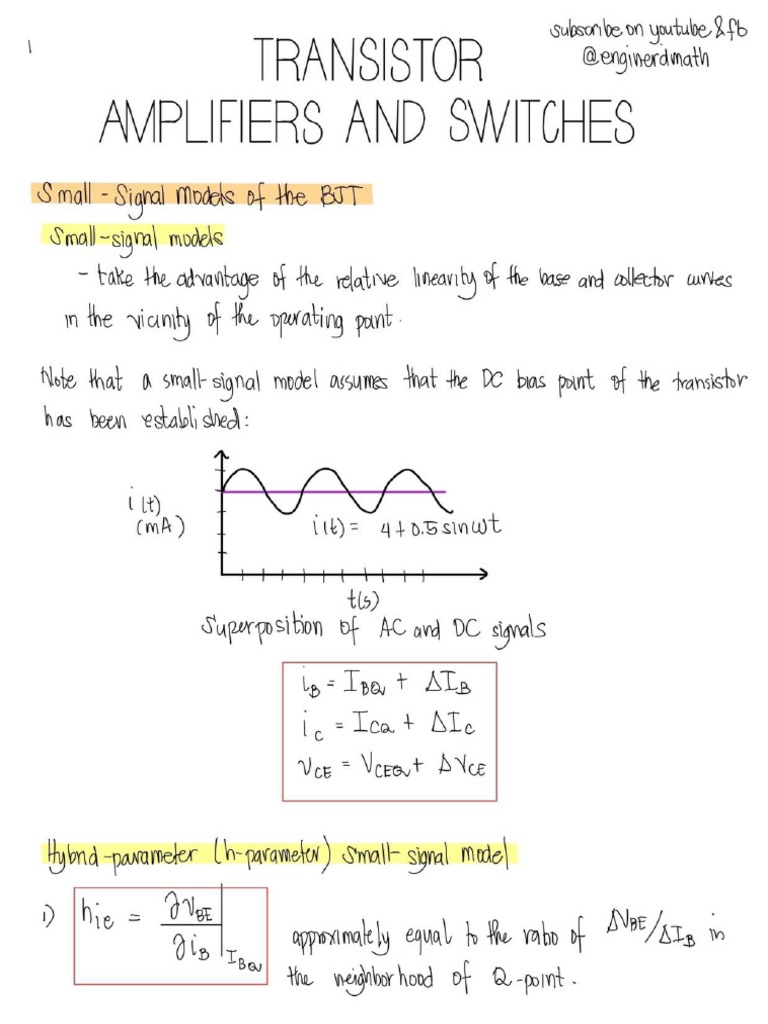 1
subscribe on youtube & fb
@enginerdmath
TRANSISTOR
AMPLIFIERS AND SWITCHES
Small-Signal Models of the BJT
Small-signal models
- take the advantage of the relative linearity of the base and collector curves
in the vicinity of the operating point.
Note that a small-signal model assumes that the DC bias point of the transistor
has been established:
i(t)
(mA)
i(t) = 4+0.5 sin ωt
t(s)
Superposition of AC and DC signals
i_B = I_BQ + ΔI_B
i_C = I_CQ + ΔI_C
v_CE = V_CEQ + ΔV_CE
Hybrid-parameter (h-parameter) small-signal model
1) h_ie = ∂v_BE / ∂i_B |_I_BQ approximately equal to the ratio of ΔV_BE/ΔI_B in
the neighborhood of Q-point.